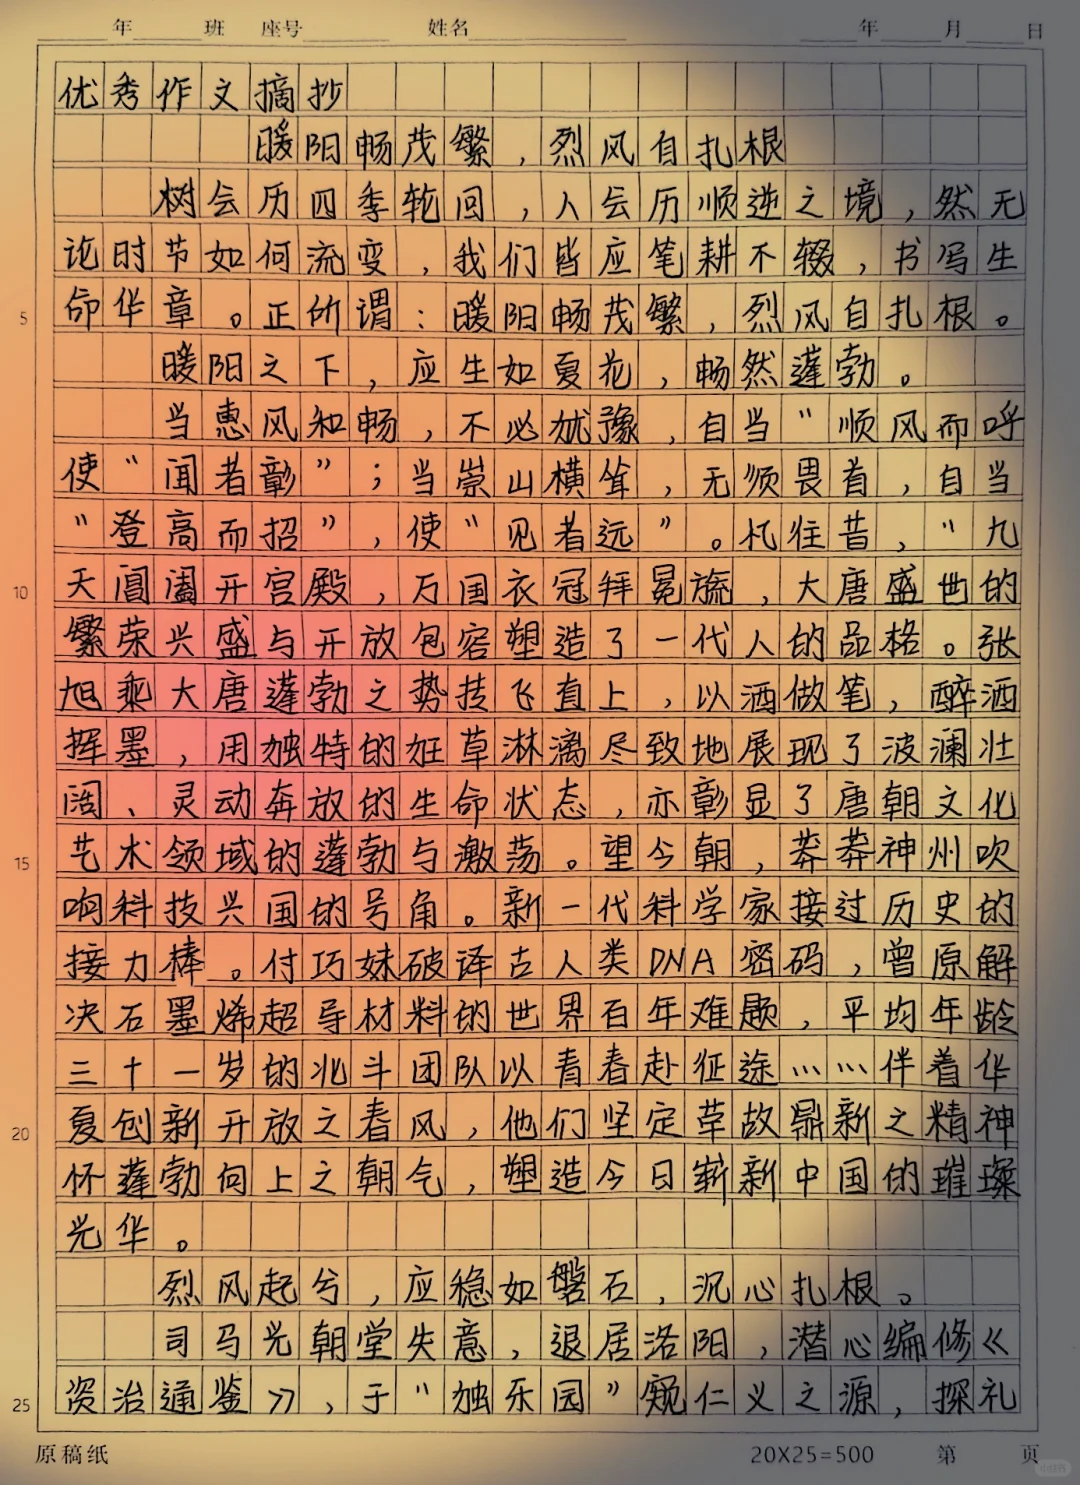 年 班 座号 姓名 年 月 日
优秀作文摘抄
暖阳畅茂繁，烈风自扎根
树会历四季轮回，人会历顺逆之境，然无
论时节如何流变，我们皆应笔耕不辍，书写生
5 命华章。正所谓：暖阳畅茂繁，烈风自扎根。
暖阳之下，应生如夏花，畅然蓬勃。
当惠风和畅，不必犹豫，自当“顺风而呼
使“闻者彰”；当崇山横耸，无须畏首，自当
“登高而招”，使“见者远”。忆往昔，“九
10 天阊阖开宫殿，万国衣冠拜冕旒，大唐盛世的
繁荣兴盛与开放包容塑造了一代人的品格。张
旭乘大唐蓬勃之势扶飞直上，以酒做笔，醉洒
挥墨，用独特的狂草淋漓尽致地展现了波澜壮
阔、灵动奔放的生命状态，亦彰显了唐朝文化
15 艺术领域的蓬勃与激荡。望今朝，莽莽神州吹
响科技兴国的号角。新一代科学家接过历史的
接力棒。付巧妹破译古人类DNA密码，曾原解
决石墨烯超导材料的世界百年难题，平均年龄
三十一岁的北斗团队以青春赴征途……伴着华
20 夏创新开放之春风，他们坚定革故鼎新之精神
怀蓬勃向上之朝气，塑造今日崭新中国的璀璨
光华。
烈风起兮，应稳如磐石，沉心扎根。
司马光朝堂失意，退居洛阳，潜心编修《
25 资治通鉴》，于“独乐园”窥仁义之源，探礼
原稿纸 20X25=500 第 页
小红书